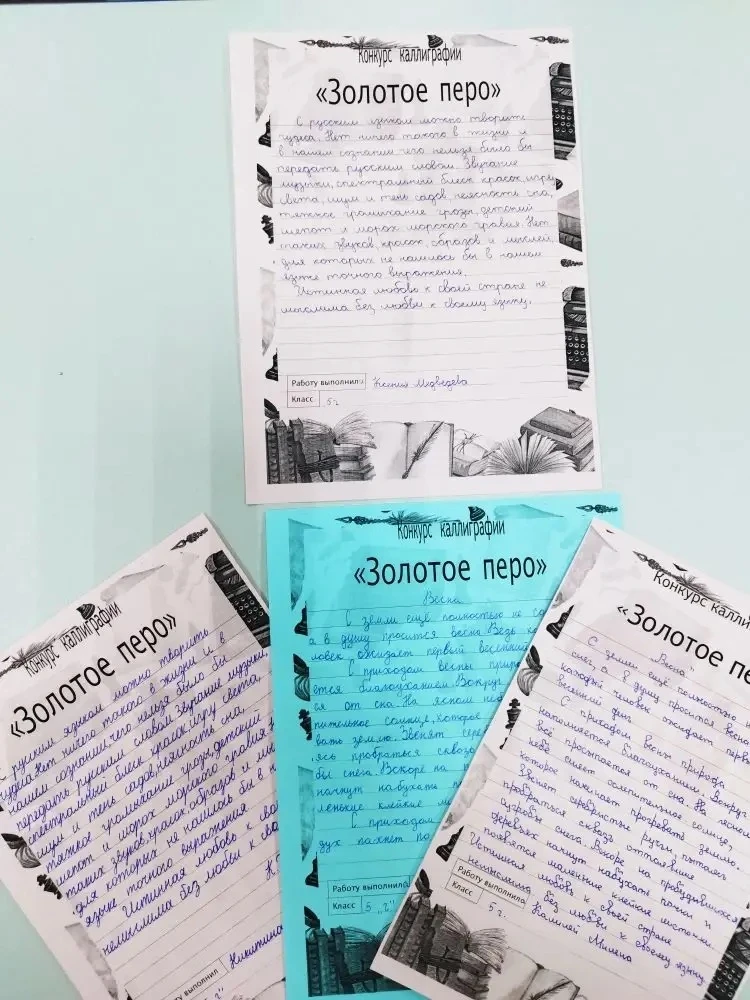 Конкурс каллиграфии
«Золотое перо»
С русским языком можно творить
чудеса. Нет ничего такого в жизни и
в нашем сознании чего нельзя было бы
передать русским словом. Звучание
музыки, спектральный блеск красок, игру
света, шум и тень садов, неясность сна,
тяжкое громыхание грозы, детский
шепот и шорох морского гравия. Нет
таких звуков, красок, образов и мыслей,
для которых не нашлось бы в нашем
языке точного выражения.
Истинная любовь к своей стране не
мыслима без любви к своему языку.
Работу выполнил:
Ксения Медведева
Класс
5 г
Конкурс каллиграфии
«Золотое перо»
С русским языком можно творить
чудеса. Нет ничего такого в жизни и в
нашем сознании, чего нельзя было бы
передать русским словом. Звучание музыки,
спектральный блеск красок, игру света,
шум и тень садов, неясность сна,
тяжкое громыхание грозы, детский
шепот и шорох морского гравия.
таких звуков, красок, образов и
для которых не нашлось бы в
языке точного выражения
Истинная любовь к
немыслима без любви к
Работу выполнил
Никитина
Конкурс каллиграфии
«Золотое перо»
Весна
С земли ещё полностью не
а в душу просится весна. Ведь
ловек ожидает первый весенний
С приходом весны
ется благоуханием. Вокруг
ся от сна. На ясном
пительное солнце, которое
вать землю. Звенят
ясь пробраться сквозь
бы снега. Вскоре на
начнут набухать
ленькие клейкие
С приходом
дух пахнет
Работу выполнил
Класс
5 „г"
Конкурс
«Золотое
„Весна"
С земли ещё полностью
снег, а в душу просится весна
каждый человек ожидает
весенний день.
С приходом весны природа
наполняется благоуханием. Вокруг
всё просыпается от сна. На
небе сияет ослепительное солнце,
которое начинает прогревать землю.
Звенят серебристые ручьи, пытаясь
пробраться сквозь оттаявшие
сугробы снега. Вскоре на пробудившихся
деревьях начнут набухать почки и
появятся маленькие клейкие листочки.
Истинная любовь к своей стране
немыслима без любви к своему языку.
Работу выполнил
Милена
Класс
5 г.